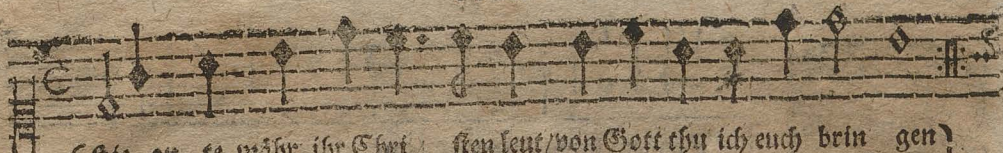 mähr ihr Chri sten leut/von Gott thu ich euch brin gen